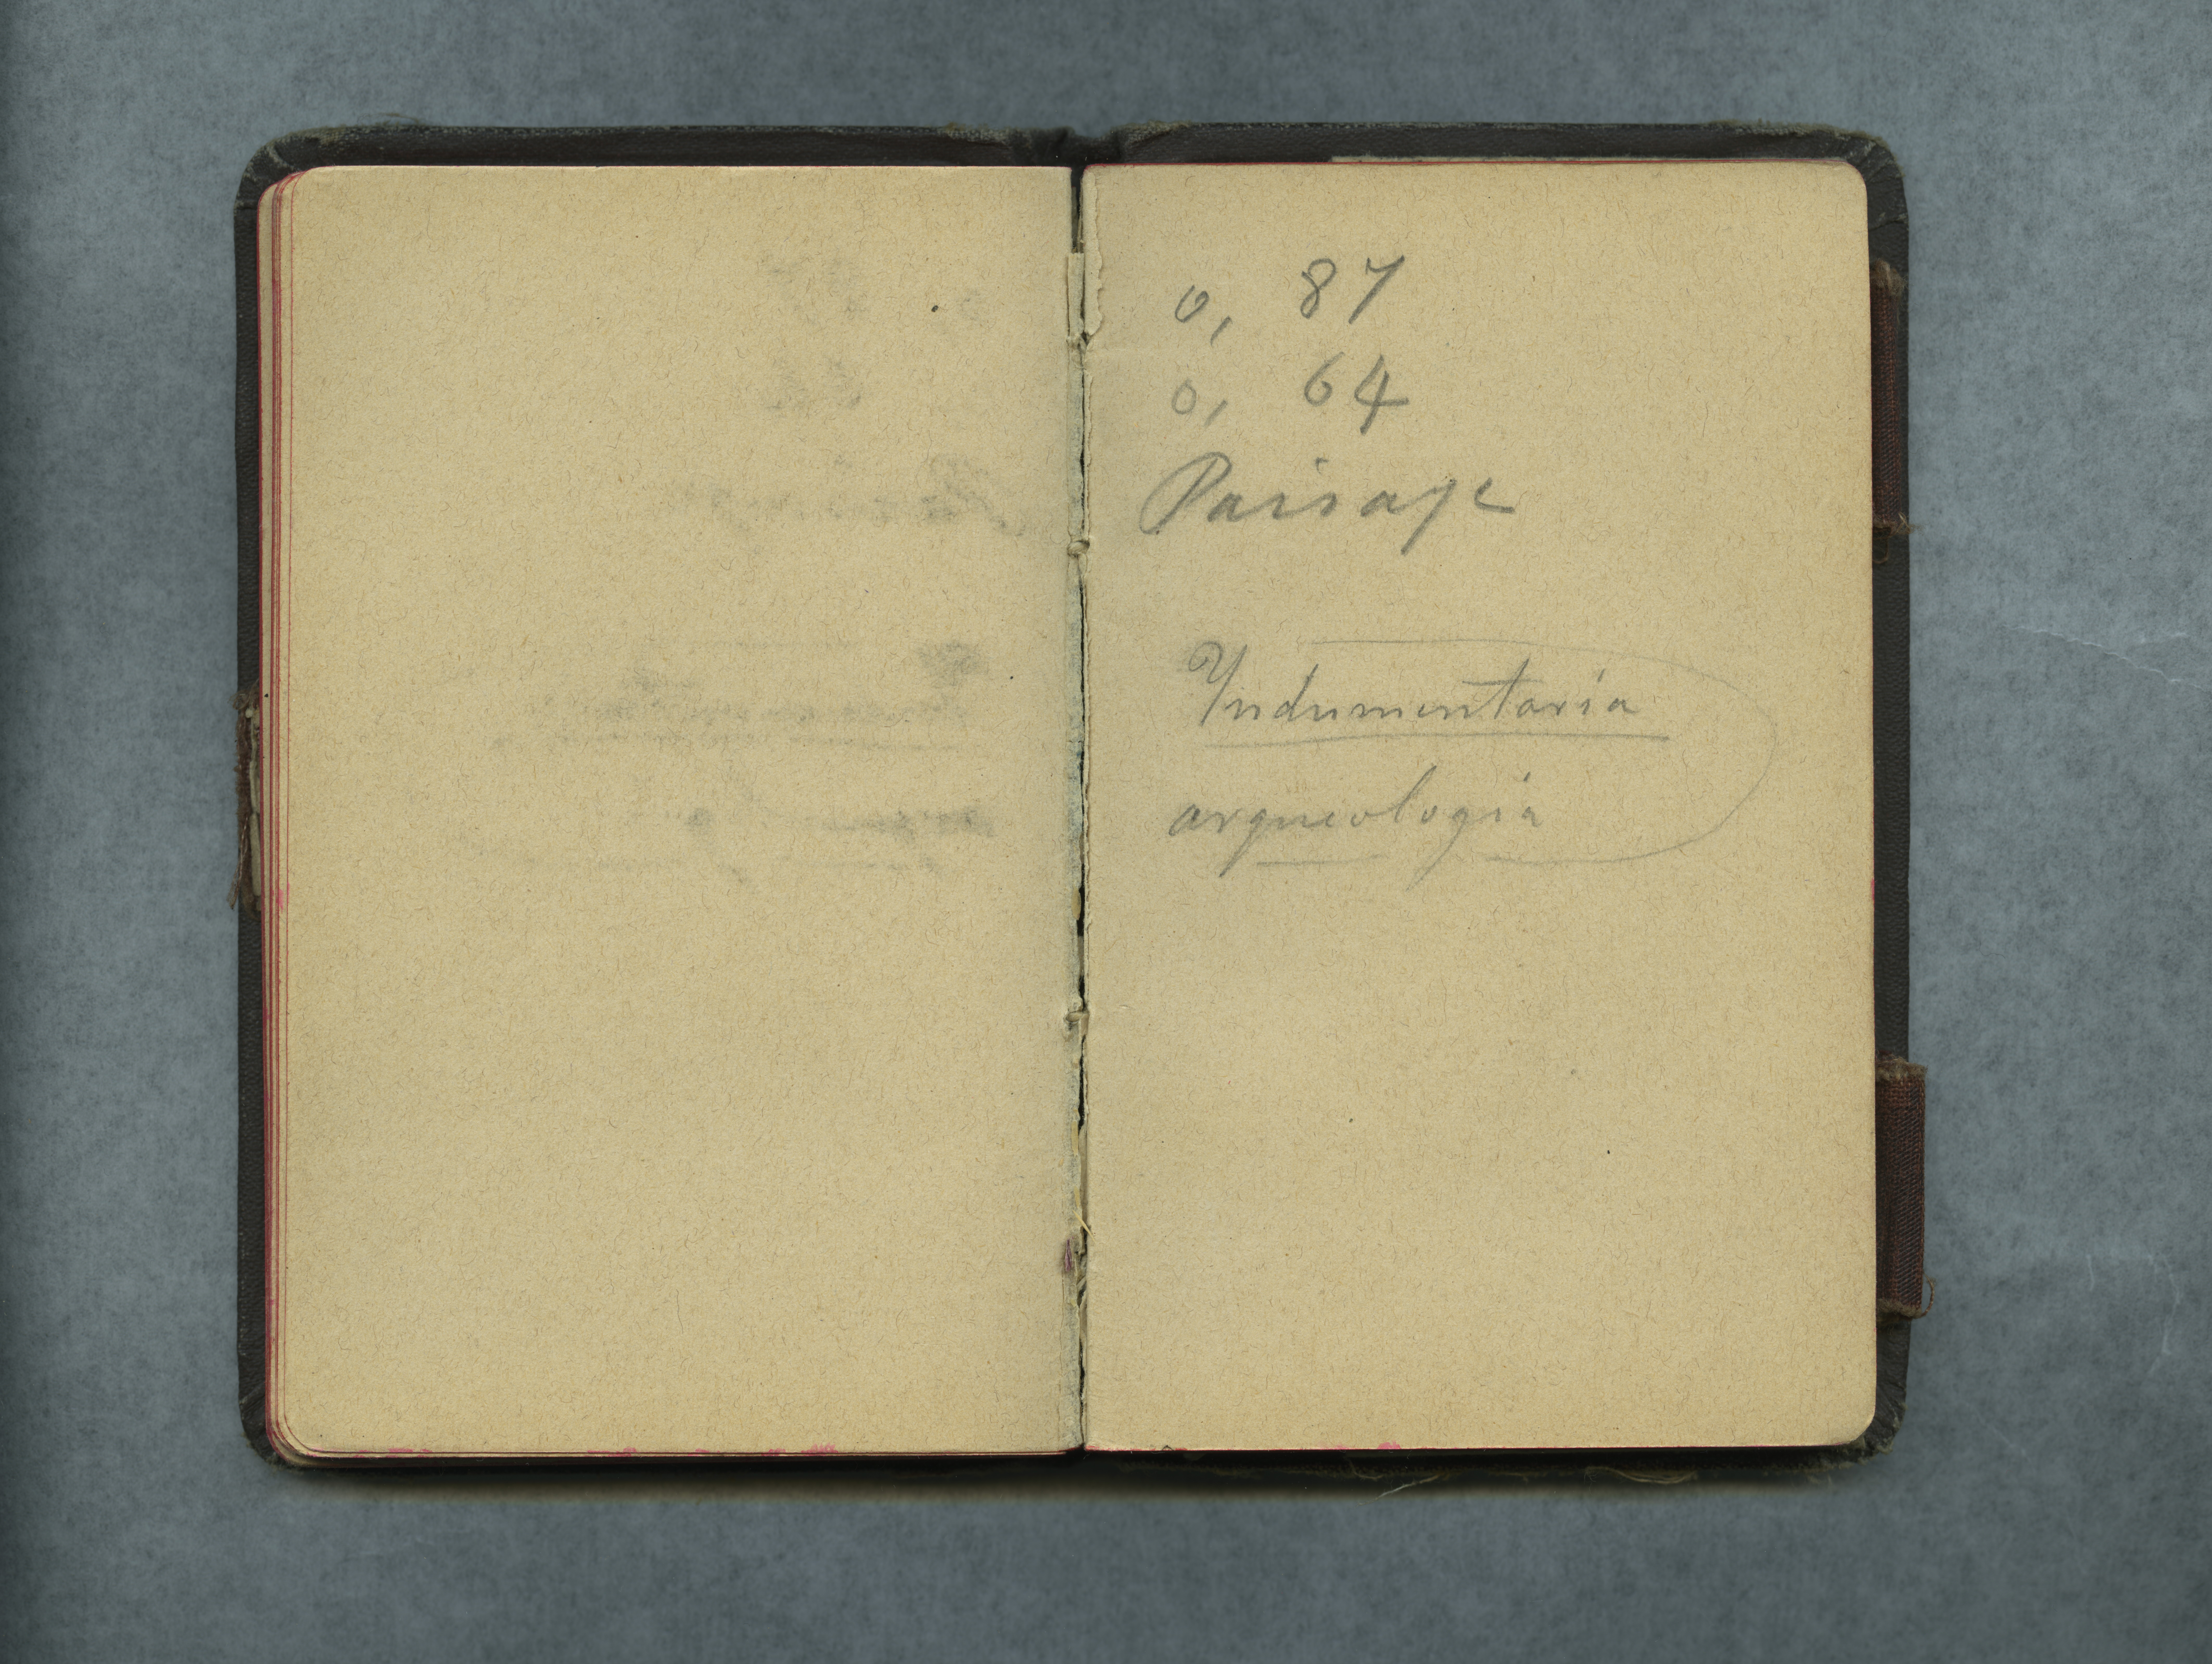 0, 87
0, 64
Paisaje
Yndumentaria
arqueologia